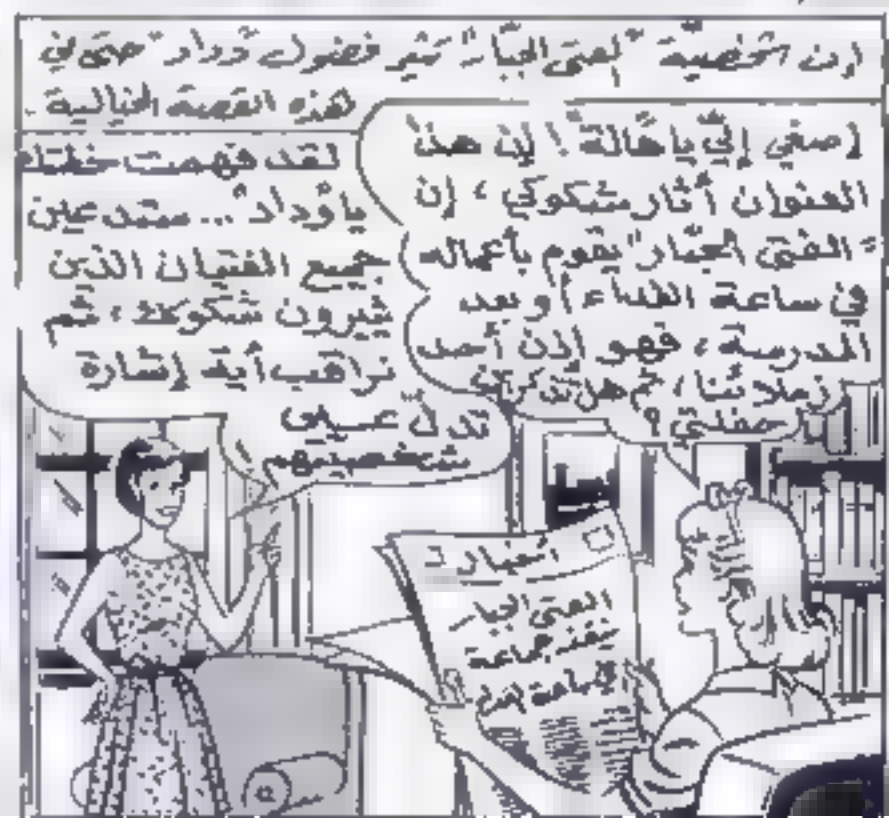 إن شخصيّة "الفتى الجبّار" تثير فضول "وداد" حتى في
هذه القصة الخيالية.
إصغي إليّ يا هالة! إن هذا
العنوان أثار شكوكي، إن
"الفتى الجبّار" يقوم بأعماله
في ساعة الغداء أو بعد
المدرسة، فهو إذن أحد
زملائنا، ثم هل تذكرين
حفلتي؟
لقد فهمت خطتك
يا وداد... ستدعين
جميع الفتيان الذين
يثيرون شكوكك، ثم
نراقب أية إشارة
تدلّ على
شخصيتهم!
أخبار
الفتى الجبار
ينقذ جماعة